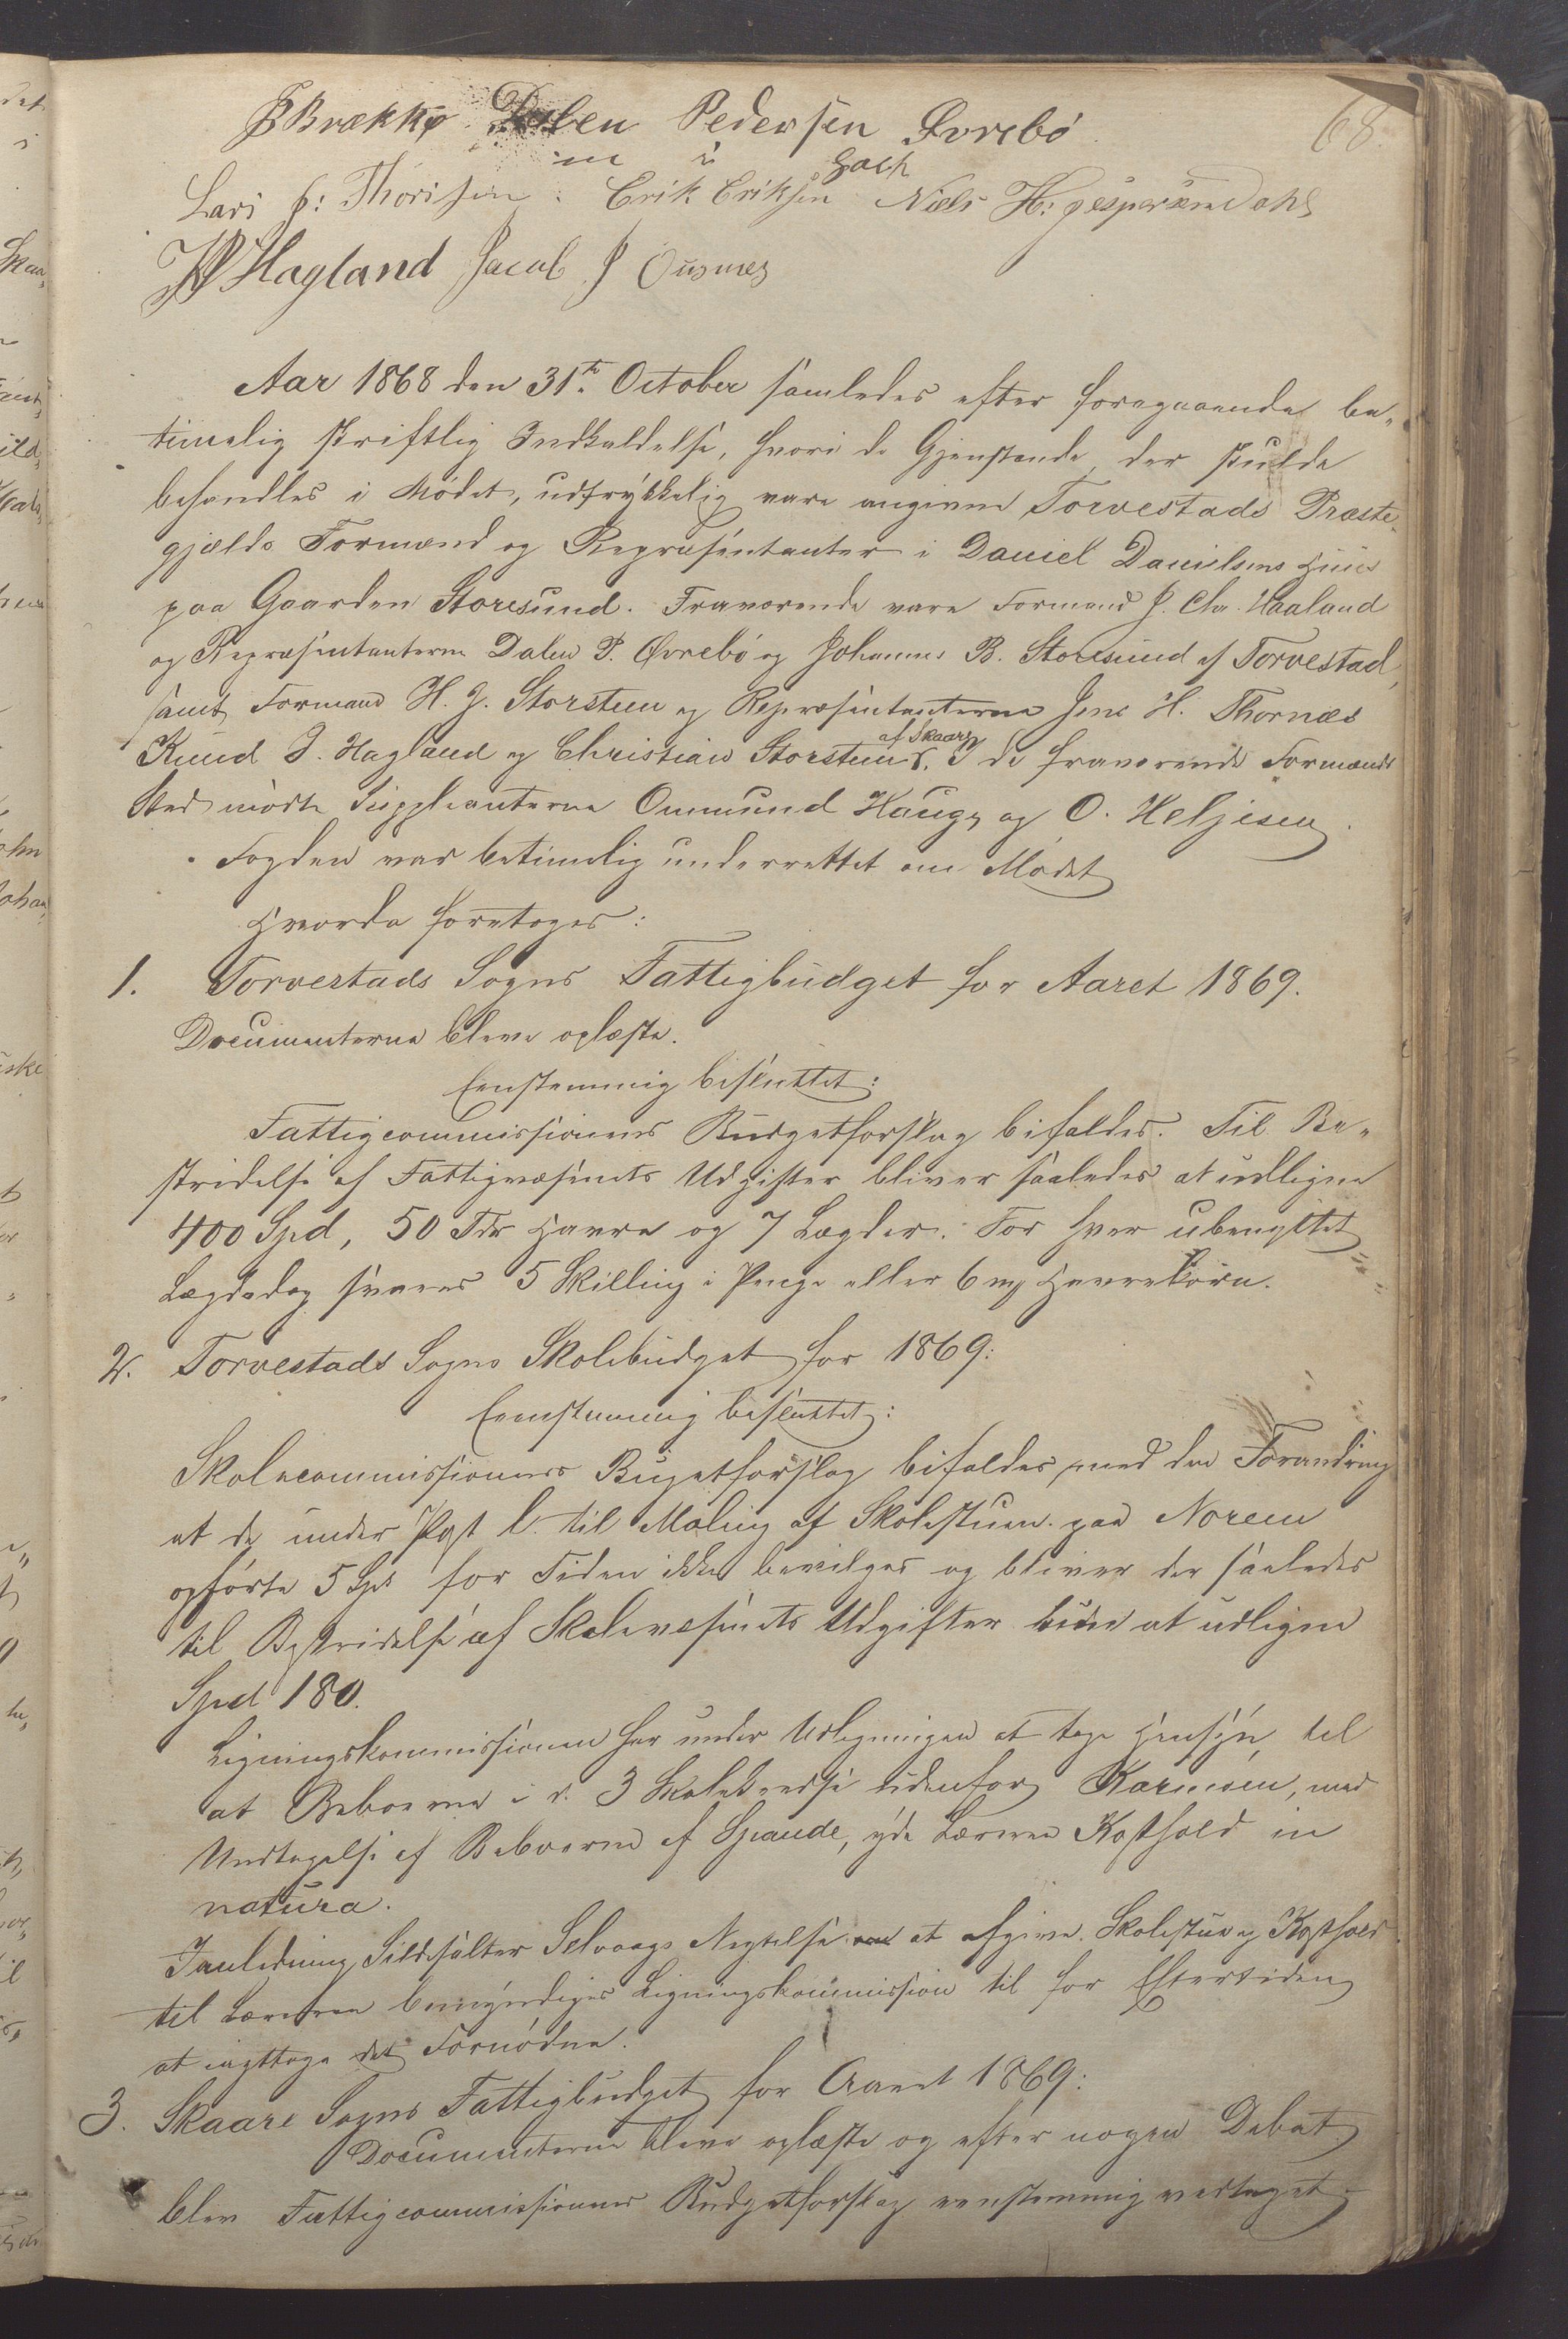 68.
B Brække Dalen Pedersen Övrebö
Lars J: Thorisen Erik Eriksen Niels H: Jespersen Dahl
Hagland Jacob J Ousnes
Aar 1868 den 31te October samledes efter foregaaende be„
timelig skriftlig Indkaldelse, hvori de Gjenstande, der skulde
behandles i Mødet, udtrykkelig vare angivne Torvestads Præste„
gjælds Formænd og Repræsentanter i Daniel Danielsens Huus
paa Gaarden Storesund. Fraværende vare Formand J. Chr. Haaland
og Repræsentanterne Dalen P. Øvrebö og Johannes B. Storesund af Torvestad,
samt Formand H. J. Storsteen og Repræsentanterne Jens H. Thornæs
Knud J. Hagland og Christian Storsteen af Skaare. I de fraværende Formænds
Sted mødte Suppleanterne Ommund Hauge og O. Heljesen.
Fogden var betimelig underrettet om Mødet
Hvorda foretoges:
1. Torvestads Sogns Fattigbudget for Aaret 1869.
Documenterne bleve oplæste.
Eenstemmig besluttet:
Fattigcommissionens Budgetforslag bifaldes. Til Be„
stridelse af Fattigvæsenets Udgifter bliver saaledes at udligne
400 Spd, 50 Tdr Havre og 7 Lægder. For hver ubenyttet
Lægdsdag svares 5 Skilling i Penge eller 6 mk Havrekorn.
2. Torvestads Sogns Skolebudget for 1869:
Eenstemmig besluttet:
Skolecommissionens Bugetforslag bifaldes, med den Forandring
at de under Post l. til Maling af Skolestuen paa Noreem
opførte 5 Spd for Tiden ikke bevilges og bliver der saaledes
til Bestridelse af Skolevæsenets Udgifter at udligne
Spd 180.
Ligningskommissionen har under Udligningen at tage Hensyn til
at Beboerne i de 3 Skolekredse udenfor Karmøen, med
Undtagelse af Beboerne af Spande, yde Læreren Kosthold in
natura.
I Anledning Sildesalter Selvaags Negtelse at afgive Skolestue og Kosthold
til Læreren bemyndiges Ligningskommission til for Eftertiden
at iagttage det Fornødne.
3. Skaare Sogns Fattigbudget for Aaret 1869:
Documenterne bleve oplæste og efter nogen Debat
blev Fattigcommissionens Budgetforslag eenstemmig vedtaget